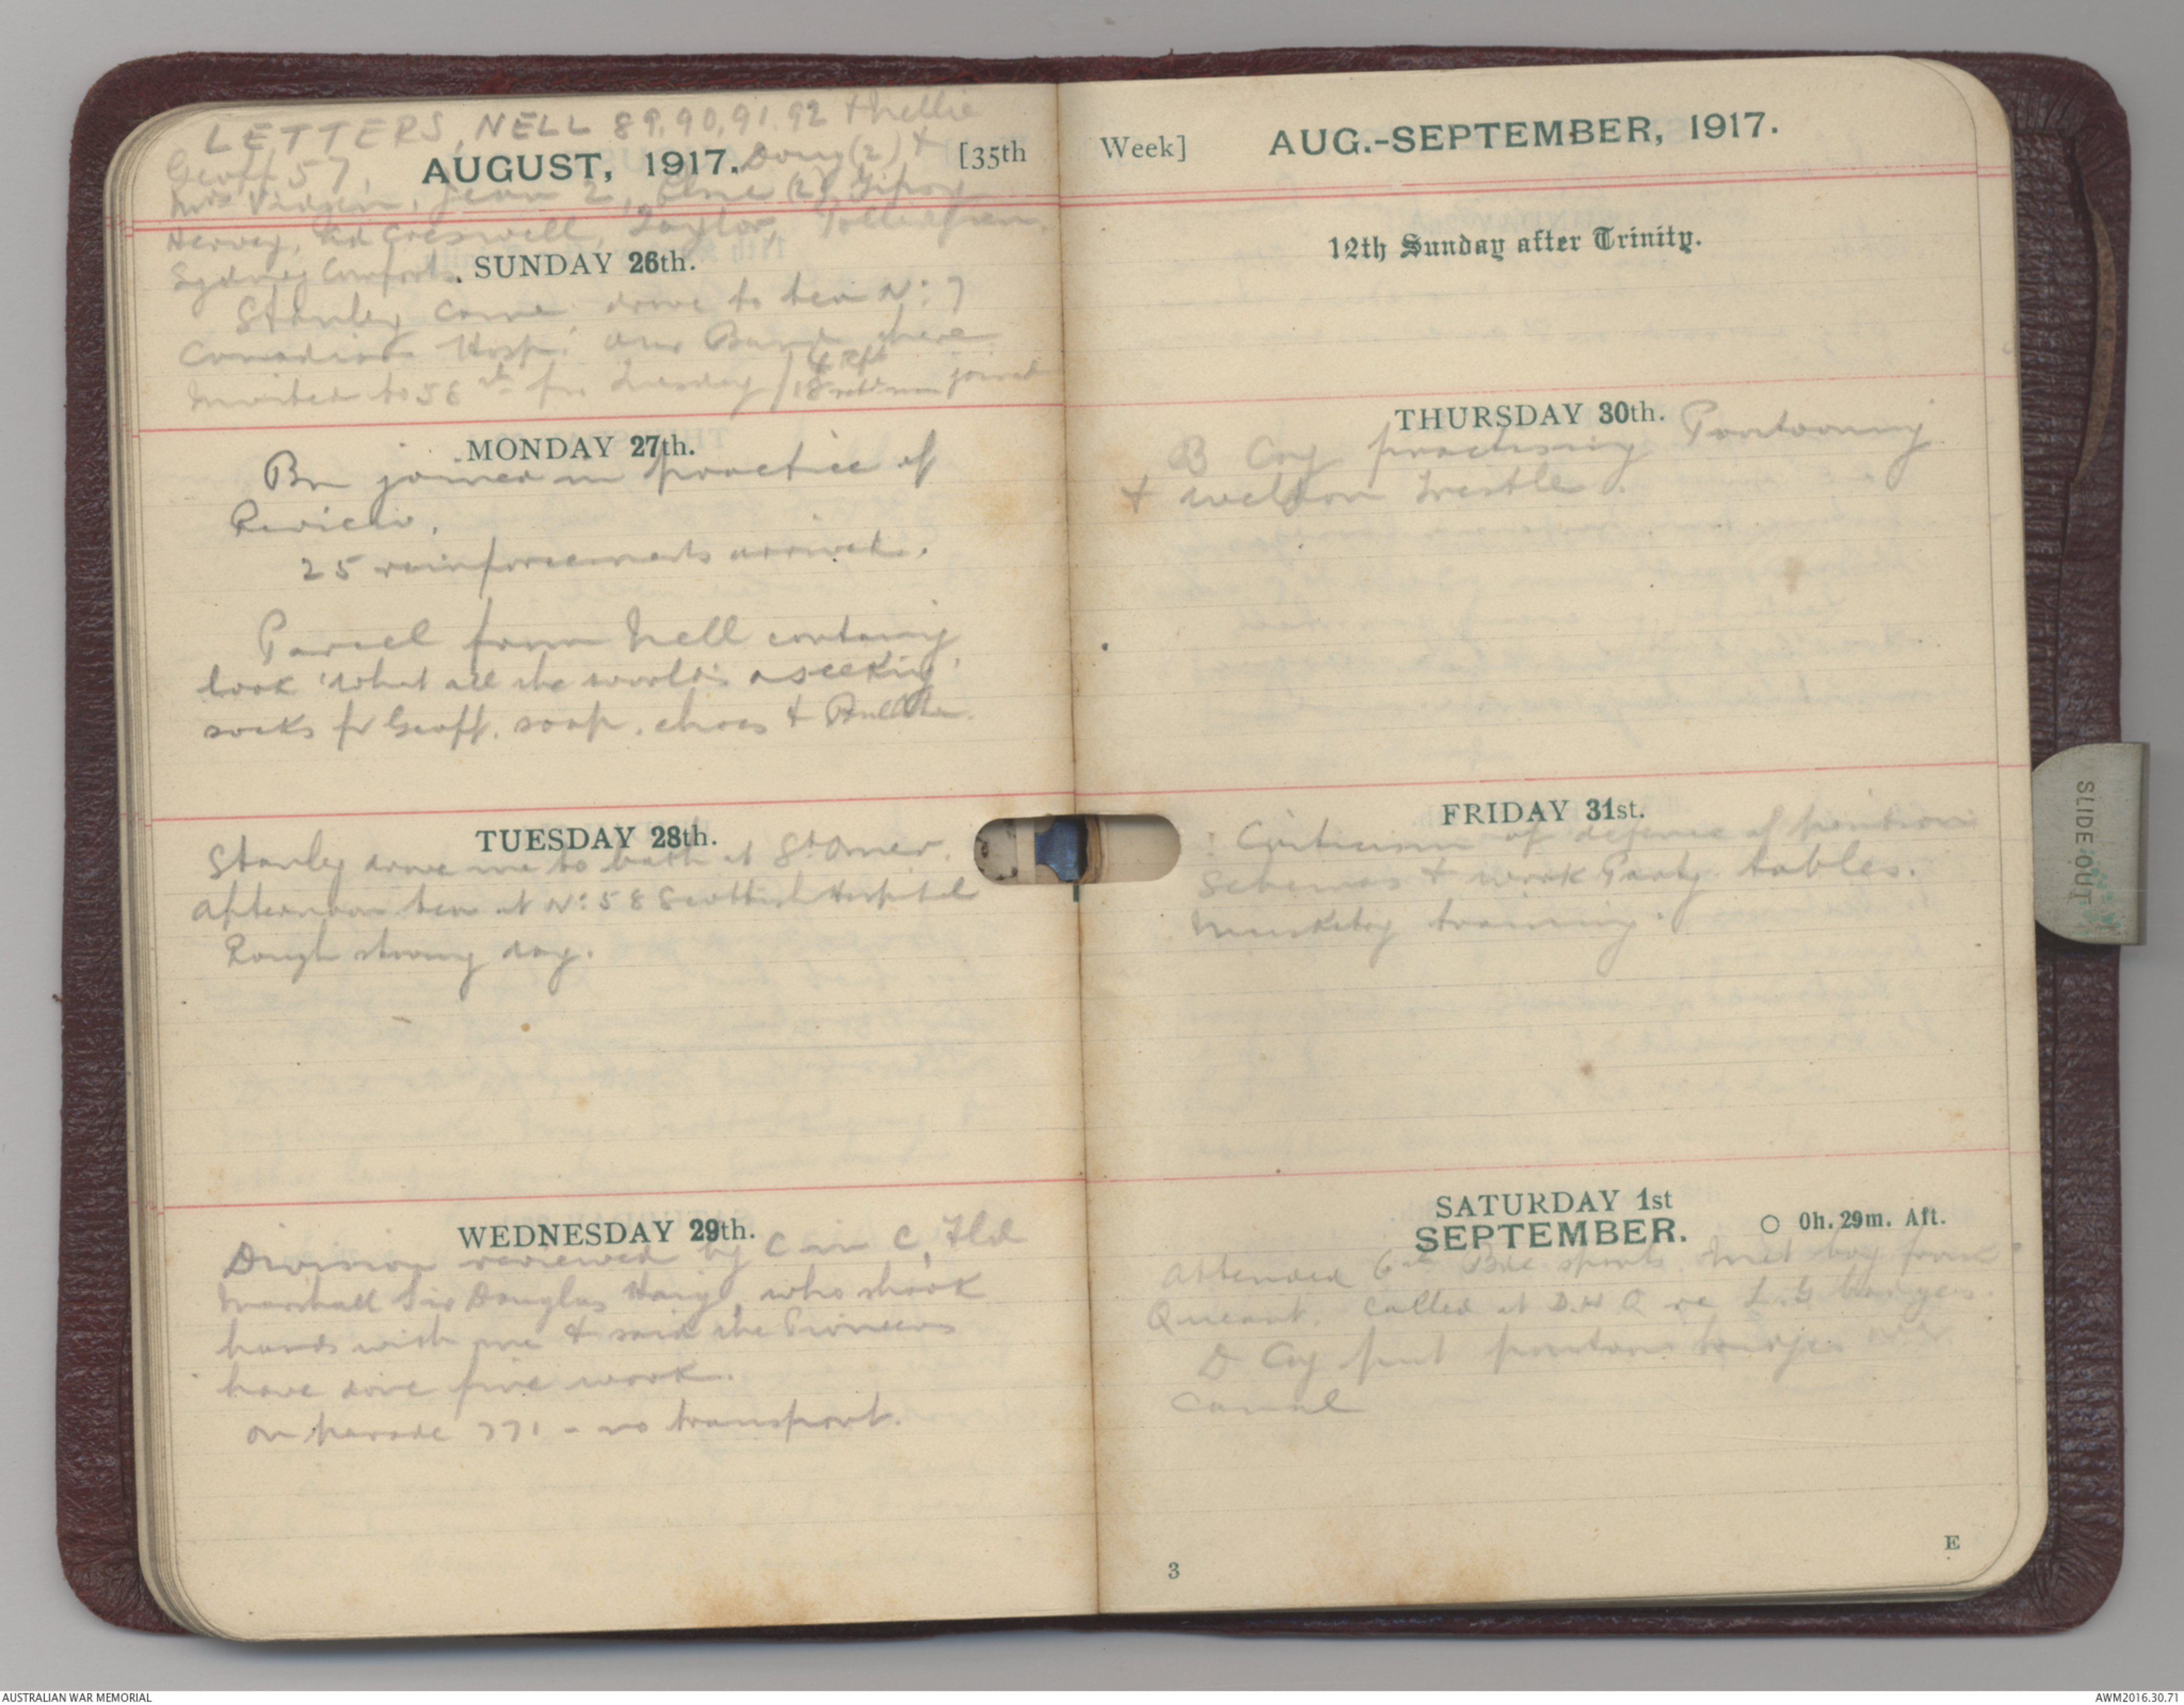 LETTERS, NELL 89, 90, 91, 92 + Nellie
Geoff 57, Doug (2) +
AUGUST, 1917. [35th
Mrs Vidgen, Jean 2, Elsie (2),
Hervey, Creswell, Taylor,
Sydney Comforts.
SUNDAY 26th.
Stanley came drove to tea No: 7
Canadian Hosp: our Band there
Invited to 58th for Tuesday / 18 joined
MONDAY 27th.
Bn joined in practice of
Review.
25 reinforcements arrived.
Parcel from Nell containg
book 'What all the world's aseeking'
socks for Geoff, soap, chocs + Bulletin.
TUESDAY 28th.
Stanley drove me to bath at St Omer.
afternoon tea at No: 58 Scottish Hospital
Rough stormy day.
WEDNESDAY 29th.
Division reviewed by C in C, Fld
Marshall Sir Douglas Haig, who shook
hands with me + said the Pioneers
have done fine work.
on parade 771 - no transport.
Week] AUG.-SEPTEMBER, 1917.
12th Sunday after Trinity.
THURSDAY 30th.
B Coy practising Pontooning
+ weldon trestle.
FRIDAY 31st.
Criticism of defence of position
Schemes + work Party tables.
Musketry training.
SATURDAY 1st
SEPTEMBER. ○ 0h. 29m. Aft.
Attended 6th Bde sports. Met boy from
Queant. Called at D.H.Q re L.G
D Coy put pontoon bridges over
Canal
3
E
SLIDE OUT
AUSTRALIAN WAR MEMORIAL
AWM2016.30.71